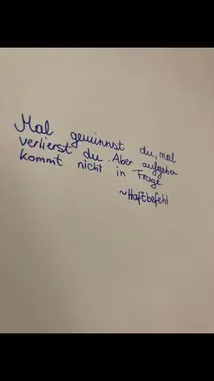 Mal gewinnst du, mal
verlierst du. Aber aufgeben
kommt nicht in Frage.
~Haftbefehl